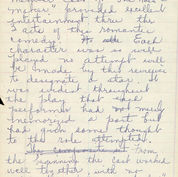 molver" provided excellent
entertainment thru the
3 acts of this romantic
comedy. Each
character was so well
played no attempt will
be made by this reviewer
to designate a star. It
was evident throughout
the play that each
performer had not only
memorized a part but
had given some thought
to the role attempted.
From
the beginning the cast worked
well together, with no